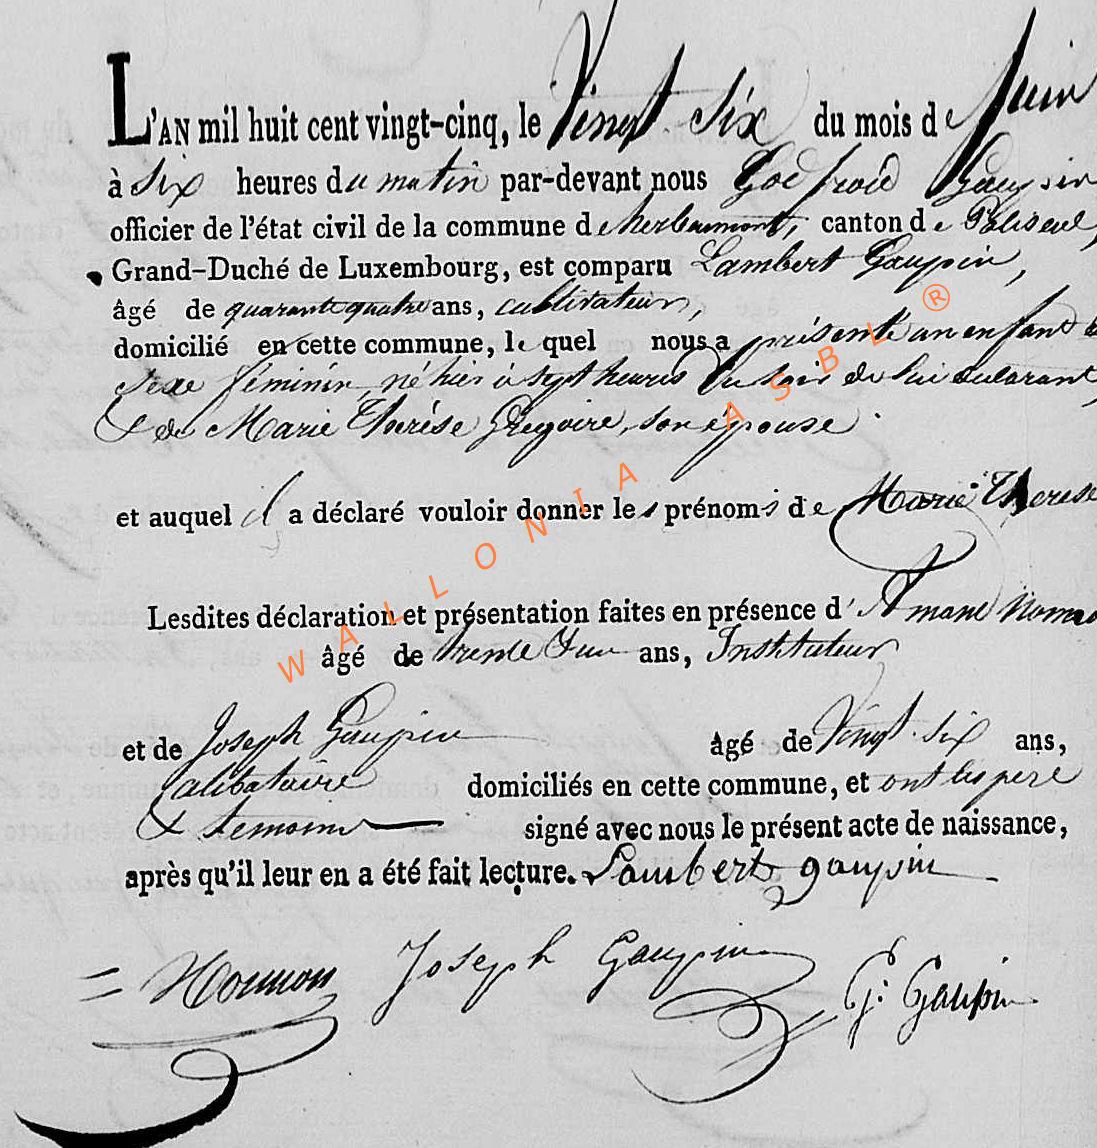 L'AN mil huit cent vingt-cinq, le Vingt Six du mois de Juin
à Six heures du matin par-devant nous Godfroid Gaupin
officier de l'état civil de la commune de Herbeumont, canton de Paliseul,
Grand-Duché de Luxembourg, est comparu Lambert Gaupin,
âgé de quarante quatre ans, cultivateur,
domicilié en cette commune, le quel nous a présenté un enfant
sexe féminin, né hier à sept heures du soir de lui déclarant,
& de Marie Thérése Grégoire, son épouse.
et auquel il a déclaré vouloir donner les prénoms de Marie Thérese
Lesdites déclaration et présentation faites en présence d'Amand
âgé de trente d'un ans, Instituteur
et de Joseph Gaupin âgé de Vingt-Six ans,
Calibataire domiciliés en cette commune, et ont les pere
& temoins signé avec nous le présent acte de naissance,
après qu'il leur en a été fait lecture. Lambert gaupin
Joseph Gaupin G. Gaupin
WALLONIA ASBL ®